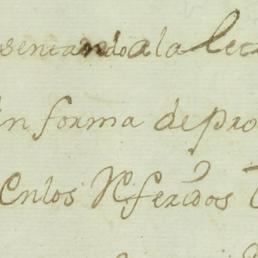 sentando a la
en forma de pro
En los Referidos